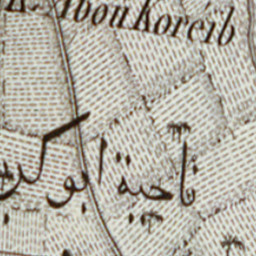 K. Abou Koreïb
ناحية ابو كريب